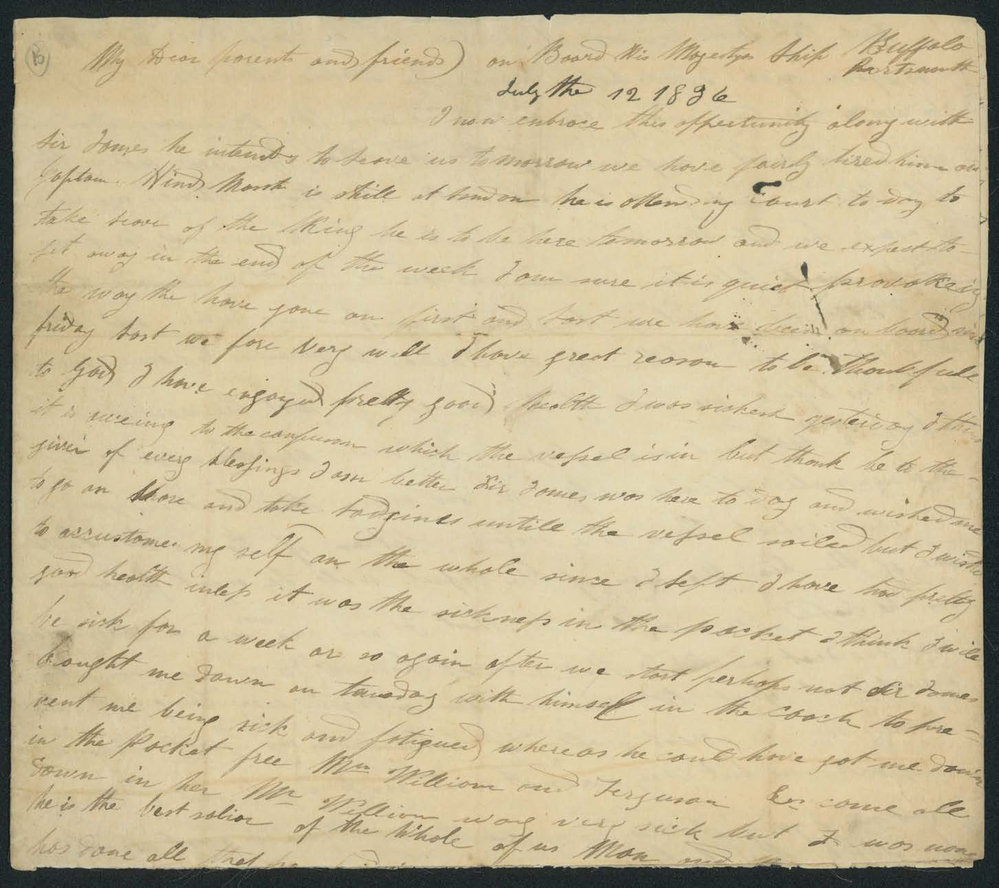 B
My Dear parents and friends) on Board His Majestys Ship Buffalo
Portsmouth
July the 12 1836
I now embrace this oppertunity along with
Sir James he intends to leave us tomorrow we have fairly tired him out
Captan Hind Marsh is still at london he is attending Court to day to
take leave of the King he is to be here tomorrow and we expect to
get away in the end of the week I am sure it is quiet provokeing
the way the have gone on first and last we have been on board since
friday last we fare very well I have great reason to be thankfull
to God I have enjoyed pretty good health I was sickest yesterday I think
it is oweing to the confusion which the vessel is in but thank be to the
giver of every blessings I am better Sir James was here to day and wished me
to go on shore and take lodgines untile the vessel sailed but I wish
to accustome my self on the whole since I left I have had pretty
good health unless it was the sickness in the packet I think I will
be sick for a week or so again after we start perhaps not Sir James
bought me down on tuesday with himself in the coach to pre-
vent me being sick and fatigued whereas he could have got me down
in the Packet free Mr William and Ferguson come all
down in her Mr William was very sick but I was
he is the best sailor of the whole of us Man and
has done all that